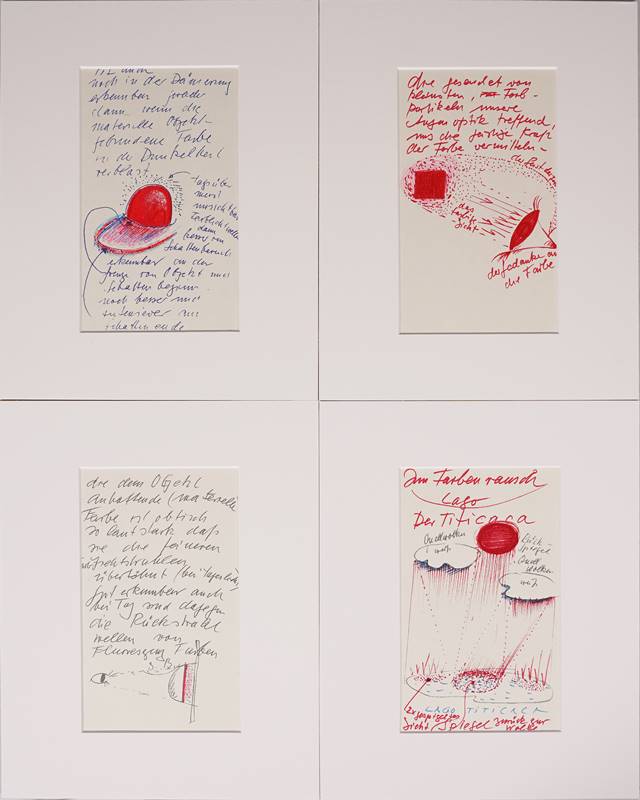 noch in der Dämerung
erkennbar grade
dann wenn die
materielle Objekt-
gebundene Farbe
in der Dunkelheit
verblast
tagsüber
meist
unsichtbar
dann
besser im
Schattenbereich
erkennbar an der
Grenze von Objekt und
Schatten beginn.
noch besser und
intensiever im
die gesendet von
kleinsten, Farb-
partikeln unsere
Augenoptik treffend,
uns die geistige Kraft
der Farbe vermitteln-
das
Farb
licht
der Gedanke an
die Farbe
die dem Objekt
anhaftende (materielle
Farbe ist obtisch
so lautstark daß
sie die feineren
Lichtstrahlen
übertöhnt (bei Tageslicht)
gut erkennbar auch
bei Tag sind dagegen
die Rückstrahl
wellen von
Fluoreszing Farben
Im Farbenrausch
Lago
Der Titicaca
Quellwolken
weis
Rück-
spiegel
Quell
Wolken
weis
LAGO TITICACA
2x gespiegeltes
Licht / Spiegel zurück zur
Wolke